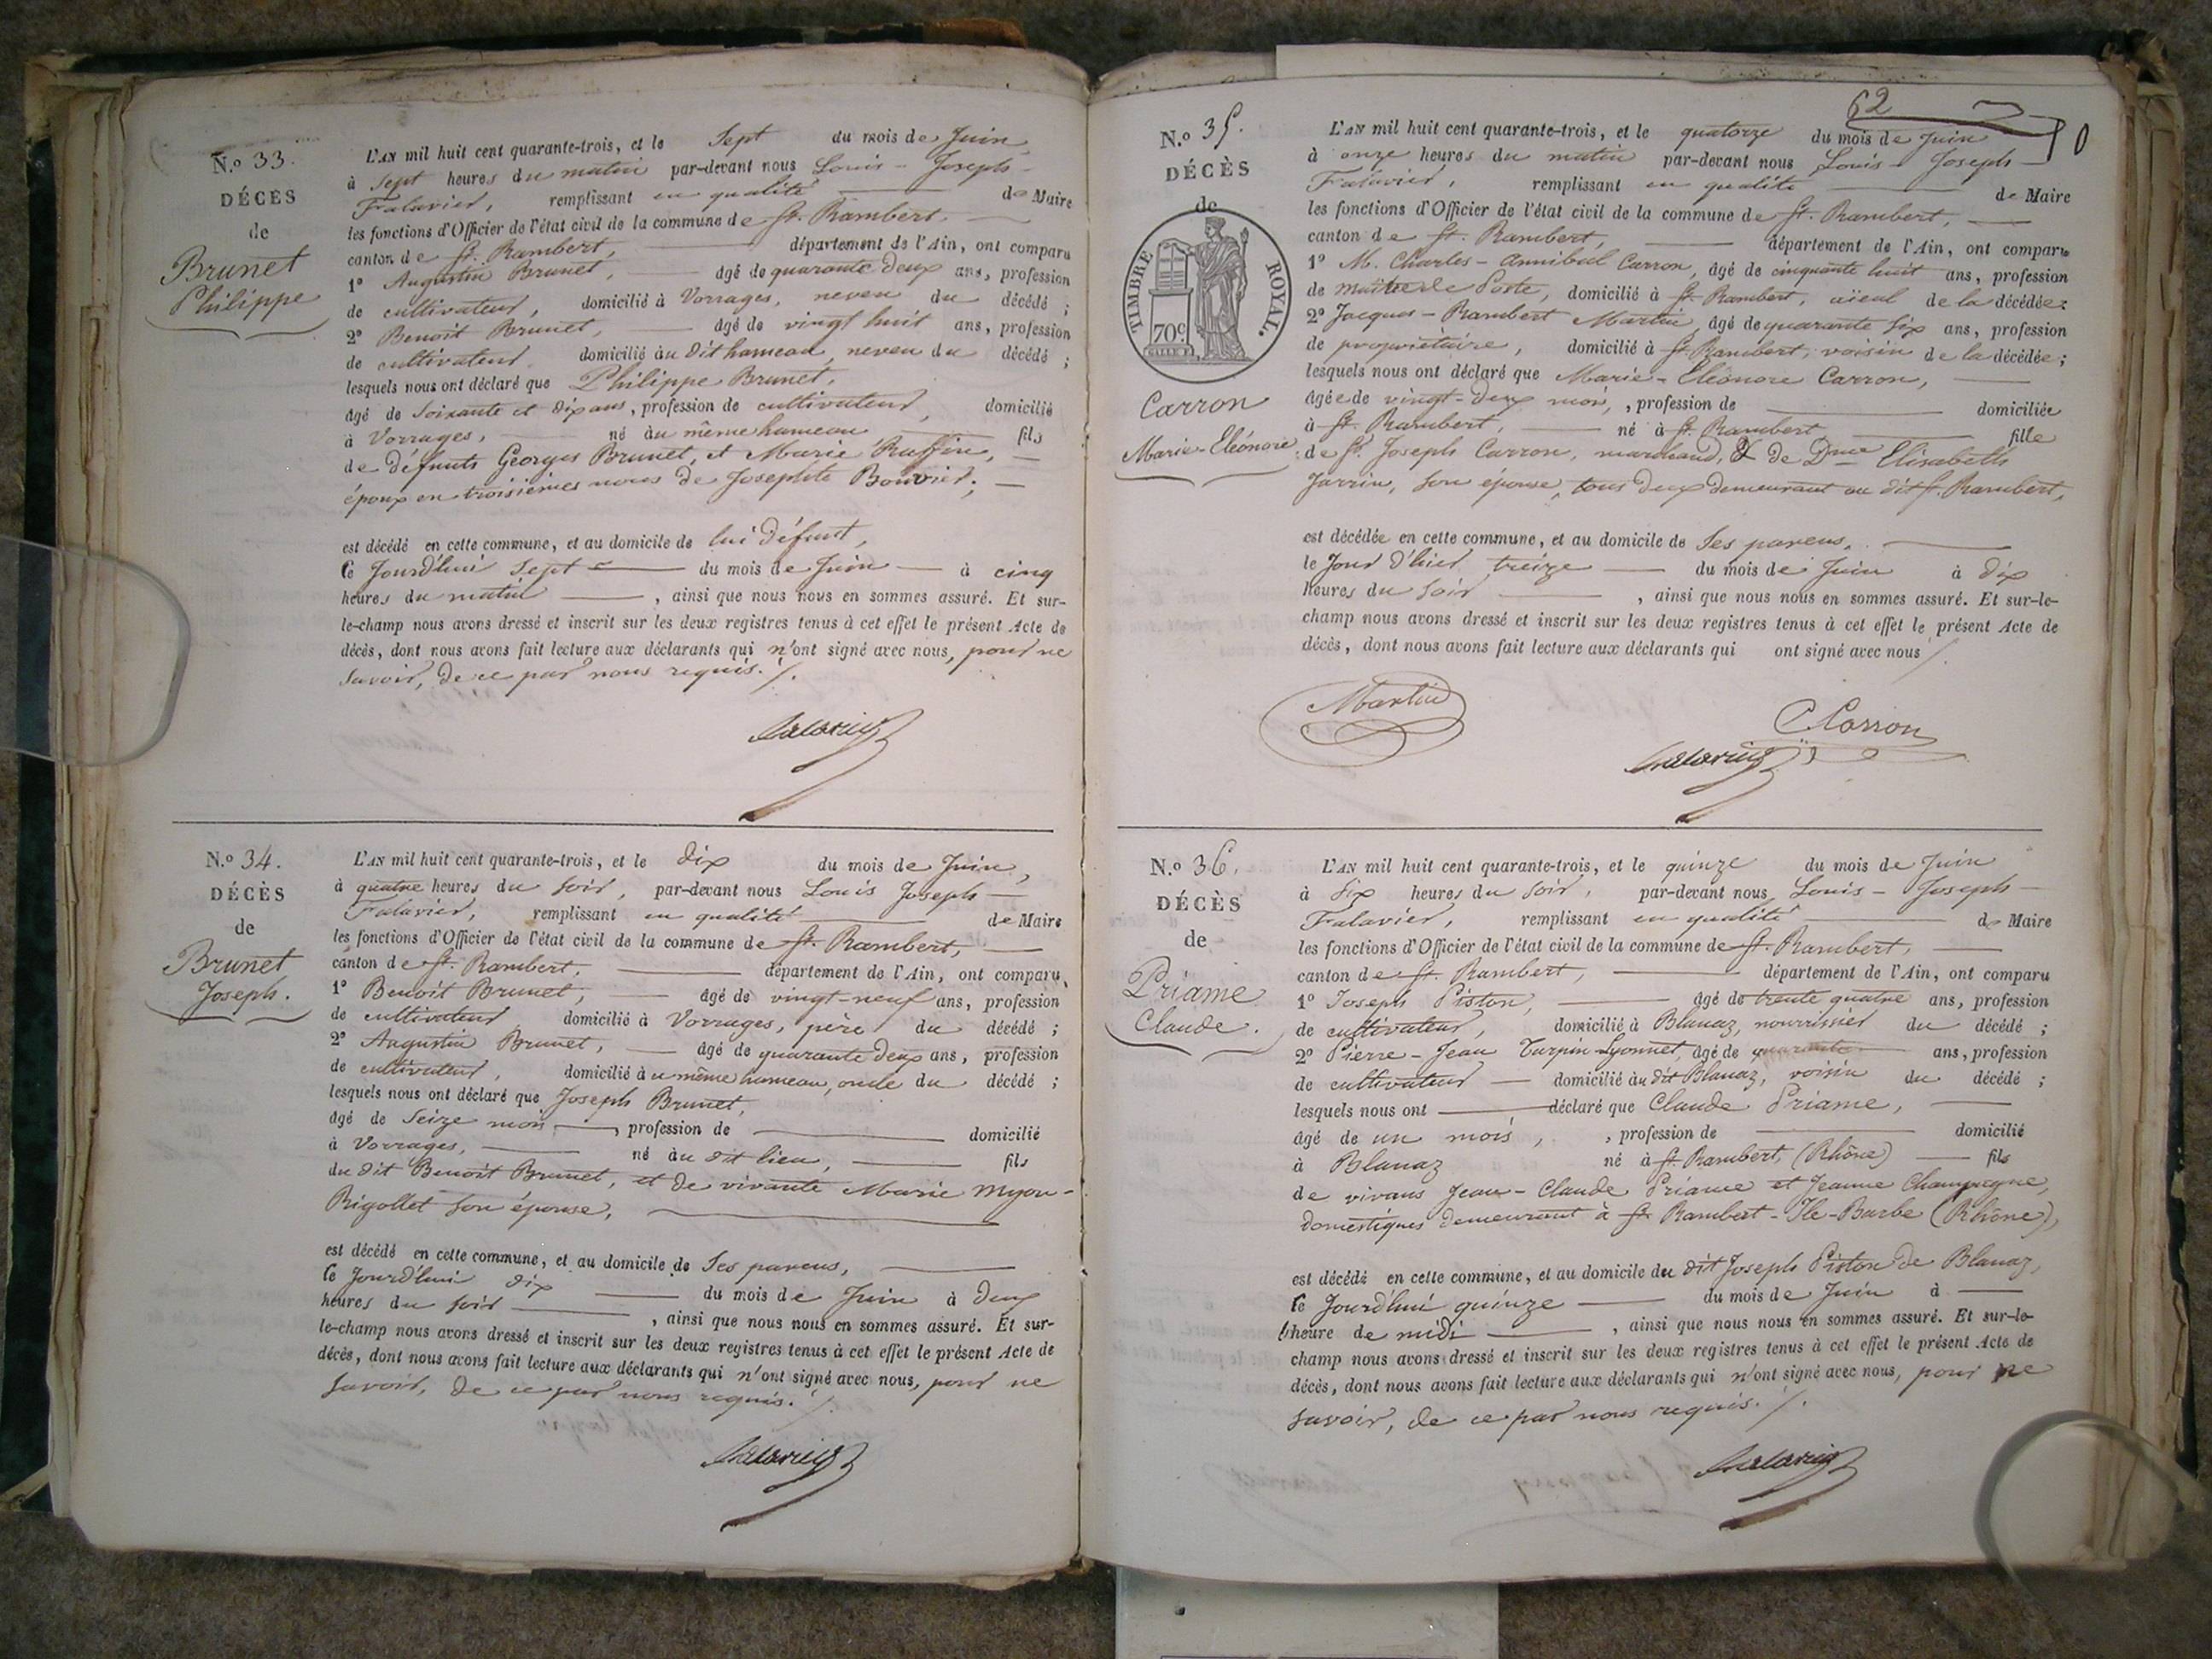 N.º 33.
DÉCÈS
de
Brunet
Philippe
L'AN mil huit cent quarante-trois, et le Sept du mois de Juin,
à Sept heures du matin par-devant nous Louis-Joseph-
Falavier, remplissant en qualité de Maire
les fonctions d'Officier de l'état civil de la commune de St. Rambert,
canton de St. Rambert, département de l'Ain, ont comparu
1º Augustin Brunet, âgé de quarante deux ans, profession
de cultivateur, domicilié à Vorrages, neveu du décédé ;
2º Benoit Brunet, âgé de vingt huit ans, profession
de cultivateur domicilié au dit hameau, neveu du décédé ;
lesquels nous ont déclaré que Philippe Brunet,
âgé de Soixante et dix ans, profession de cultivateur, domicilié
à Vorrages, né au même hameau fils
de défunts Georges Brunet, et Marie Ruffin,
époux en troisièmes noces de Josephte Bouvier,
est décédé en cette commune, et au domicile de lui défunt,
le Jourd'hui Sept du mois de Juin à cinq
heures du matin, ainsi que nous nous en sommes assuré. Et sur-
le-champ nous avons dressé et inscrit sur les deux registres tenus à cet effet le présent Acte de
décès, dont nous avons fait lecture aux déclarants qui n'ont signé avec nous, pour ne
Savoir, de ce par nous requis. /.
Falavier
N.º 34.
DÉCÈS
de
Brunet
Joseph.
L'AN mil huit cent quarante-trois, et le dix du mois de Juin,
à quatre heures du soir, par-devant nous Louis Joseph-
Falavier, remplissant en qualité de Maire
les fonctions d'Officier de l'état civil de la commune de St. Rambert,
canton de St. Rambert, département de l'Ain, ont comparu,
1º Benoit Brunet, âgé de vingt-neuf ans, profession
de cultivateur domicilié à Vorrages, père du décédé ;
2º Augustin Brunet, âgé de quarante deux ans, profession
de cultivateur, domicilié au même hameau, oncle du décédé ;
lesquels nous ont déclaré que Joseph Brunet,
âgé de Seize mois, profession de domicilié
à Vorrages, né au dit lieu, fils
du dit Benoit Brunet, et de vivante Marie Myon-
Rigollet son épouse,
est décédé en cette commune, et au domicile de Ses parens,
le Jourd'hui dix du mois de Juin à deux
heures du soir, ainsi que nous nous en sommes assuré. Et sur-
le-champ nous avons dressé et inscrit sur les deux registres tenus à cet effet le présent Acte de
décès, dont nous avons fait lecture aux déclarants qui n'ont signé avec nous, pour ne
Savoir, de ce par nous requis. /.
Falavier
62
N.º 35.
DÉCÈS
de
TIMBRE ROYAL.
70c
Carron
Marie-Eléonore
L'AN mil huit cent quarante-trois, et le quatorze du mois de Juin
à onze heures du matin par-devant nous Louis-Joseph-
Falavier, remplissant en qualité de Maire
les fonctions d'Officier de l'état civil de la commune de St. Rambert,
canton de St. Rambert, département de l'Ain, ont comparu
1º M. Charles-Annibal Carron, âgé de cinquante huit ans, profession
de maître de Poste, domicilié à St. Rambert, aïeul de la décédée ;
2º Jacques-Rambert Martin, âgé de quarante six ans, profession
de propriétaire, domicilié à St. Rambert, voisin de la décédée ;
lesquels nous ont déclaré que Marie-Eléonore Carron,
âgée de vingt-deux mois, , profession de domiciliée
à St. Rambert, né à St. Rambert fille
de Sr. Joseph Carron, marchand, & de Dme Elisabeth
Jarrin, son épouse, tous deux demeurant au dit St. Rambert,
est décédée en cette commune, et au domicile de Ses parens,
le Jour d'hier treize du mois de Juin à dix
heures du soir, ainsi que nous nous en sommes assuré. Et sur-le-
champ nous avons dressé et inscrit sur les deux registres tenus à cet effet le présent Acte de
décès, dont nous avons fait lecture aux déclarants qui ont signé avec nous /.
Martin
CCarron
Falavier
N.º 36.
DÉCÈS
de
Priame
Claude.
L'AN mil huit cent quarante-trois, et le quinze du mois de Juin
à Six heures du soir, par-devant nous Louis-Joseph-
Falavier, remplissant en qualité de Maire
les fonctions d'Officier de l'état civil de la commune de St. Rambert,
canton de St. Rambert, département de l'Ain, ont comparu
1º Joseph Piston, âgé de trente quatre ans, profession
de cultivateur, domicilié à Blanaz, nourricier du décédé ;
2º Pierre-Jean Turpin-Lyonnet, âgé de quarante ans, profession
de cultivateur domicilié au dit Blanaz, voisin du décédé ;
lesquels nous ont déclaré que Claude Priame,
âgé de un mois, , profession de domicilié
à Blanaz né à St. Rambert, (Rhône) fils
de vivans Jean-Claude Priame et Jeanne Champagne,
domestiques demeurant à St. Rambert-Ile-Barbe (Rhône),
est décédé en cette commune, et au domicile du dit Joseph Piston de Blanaz,
le Jourd'hui quinze du mois de Juin à
heure de midi, ainsi que nous nous en sommes assuré. Et sur-le-
champ nous avons dressé et inscrit sur les deux registres tenus à cet effet le présent Acte de
décès, dont nous avons fait lecture aux déclarants qui n'ont signé avec nous, pour ne
savoir, de ce par nous requis. /.
Falavier